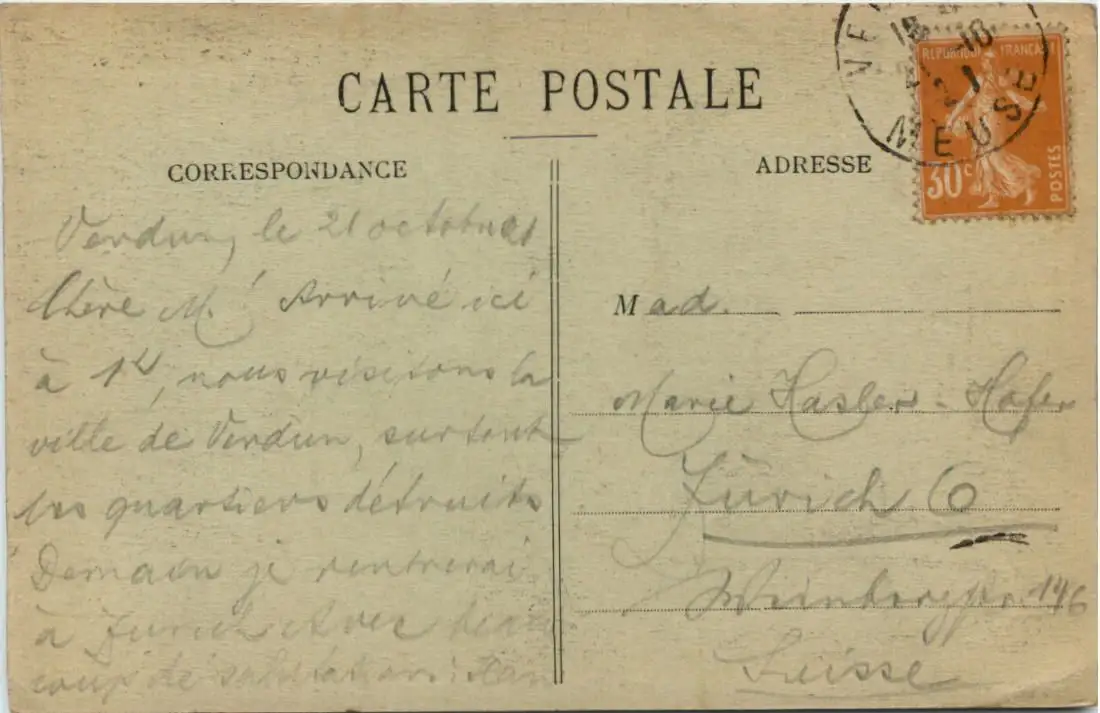 CARTE POSTALE
CORRESPONDANCE
ADRESSE
REPUBLIQUE FRANCAISE
30c
POSTES
MEUSE
Verdun, le 21 octobre
Chère M.! Arrivé ici
à 1h, nous visitons la
ville de Verdun, surtout
les quartiers détruits
Demain je rentrerai
à Zurich Avec beau
coup de salutations
Mad.
Marie Hasler-Hofer
Zürich 6
Weinbergstr. 146
Suisse